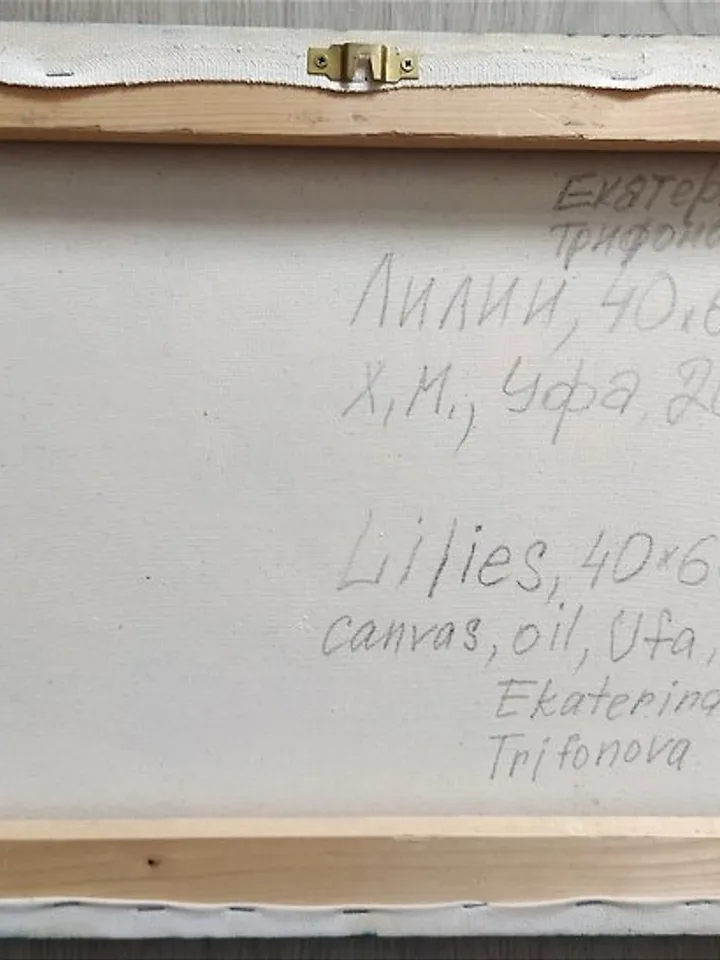 Екатер
Трифоно
Лилии, 40x6
Х, М., Уфа, 20
Lilies, 40x6
canvas, oil, Ufa,
Ekaterina
Trifonova